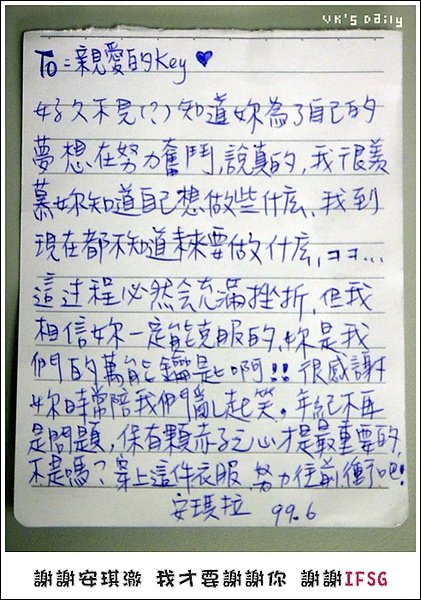 VK's Daily
To=親愛的Key ♥
好久不見(?)知道妳為了自己的
夢想在努力奮鬥,說真的,我很羨
慕妳知道自己想做些什麼、我到
現在都不知道未來要做什麼,ㄎㄎ...
這过程必然会充滿挫折,但我
相信妳一定能克服的,妳是我
們的萬能鑰匙啊!!很感謝
妳時常陪我們亂起笑。年記不再
是問題,保有顆赤子之心才是最重要的,
不是嗎?穿上這件衣服,努力往前衝吧!
安琪拉 99.6
謝謝安琪漵 我才要謝謝你 謝謝IFSG